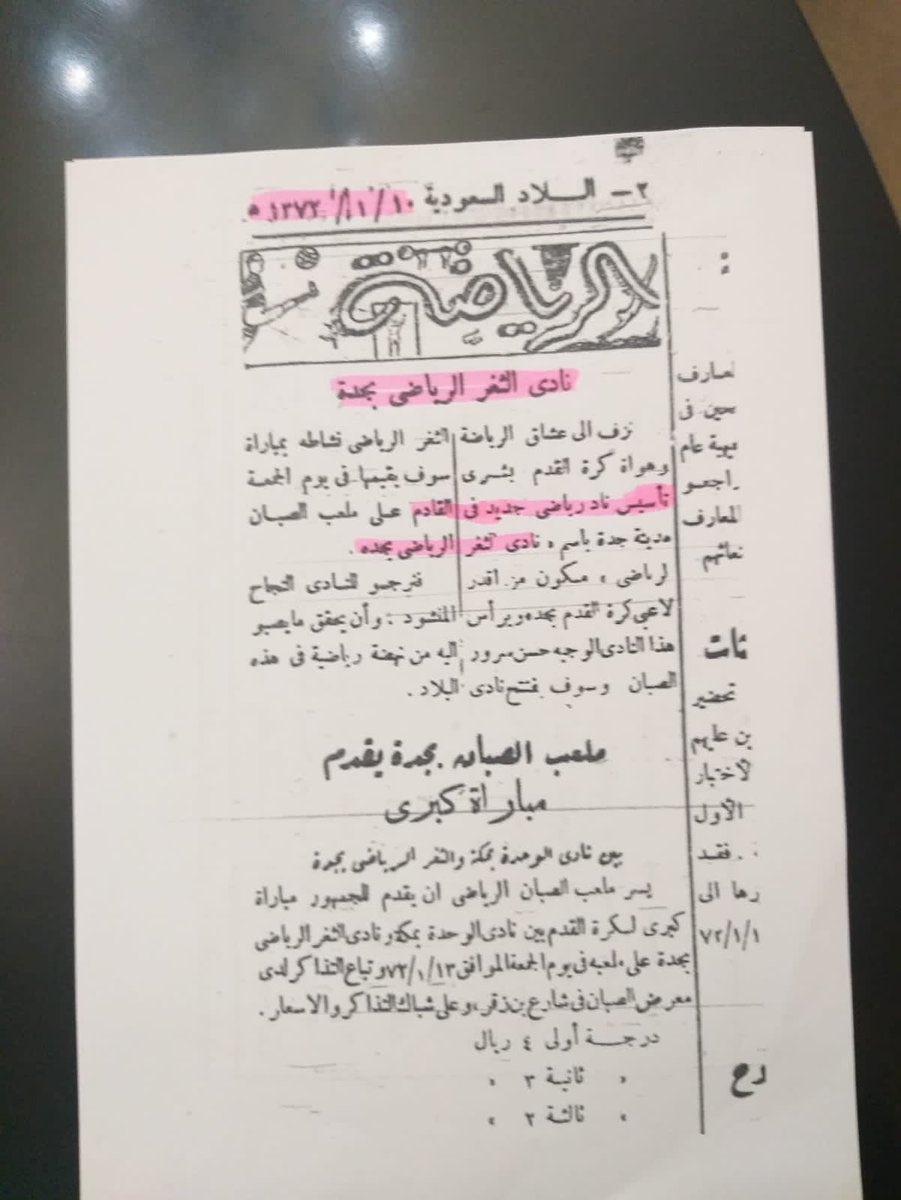 ٢ — البلاد السعودية ١٠/١/١٣٧٢ ه
الرياضة
نادى الثغر الرياضى بجدة
نزف الى عشاق الرياضة
وهواة كرة القدم بشرى
تأسيس ناد رياضى جديد فى
مدينة جدة باسم « نادى الثغر
لرياضى » مكون من اقدر
لاعبي كرة القدم بجده ويرأس
هذا النادى الوجيه حسن سرور
الصبان وسوف يفتتح نادى
الثغر الرياضى نشاطه بمباراة
سوف يقيمها فى يوم الجمعة
القادم على ملعب الصبان
الرياضى بجده .
فنرجو للنادى النجاح
المنشود : وأن يحقق ما يصبو
اليه من نهضة رياضية فى هذه
البلاد .
ملعب الصبان بجدة يقدم
مباراة كبرى
بين نادى الوحدة بمكة والثغر الرياضى بجدة
يسر ملعب الصبان الرياضى ان يقدم للجمهور مباراة
كبرى لكرة القدم بين نادى الوحدة بمكة ونادى الثغر الرياضى
بجدة على ملعبه فى يوم الجمعة الموافق ٧٢/١/١٣ وتباع التذاكر لدى
معرض الصبان فى شارع بن زقر ، وعلى شباك التذاكر والاسعار .
درجة أولى ٤ ريال
» ثانية ٣ »
» ثالثة ٢ »
لمعارف
حين فى
عام
راجعو
المعارف
ثات
تحضير
بن عليهم
لاختبار
الأول
. . فقد
رها الى
٧٢/١/١